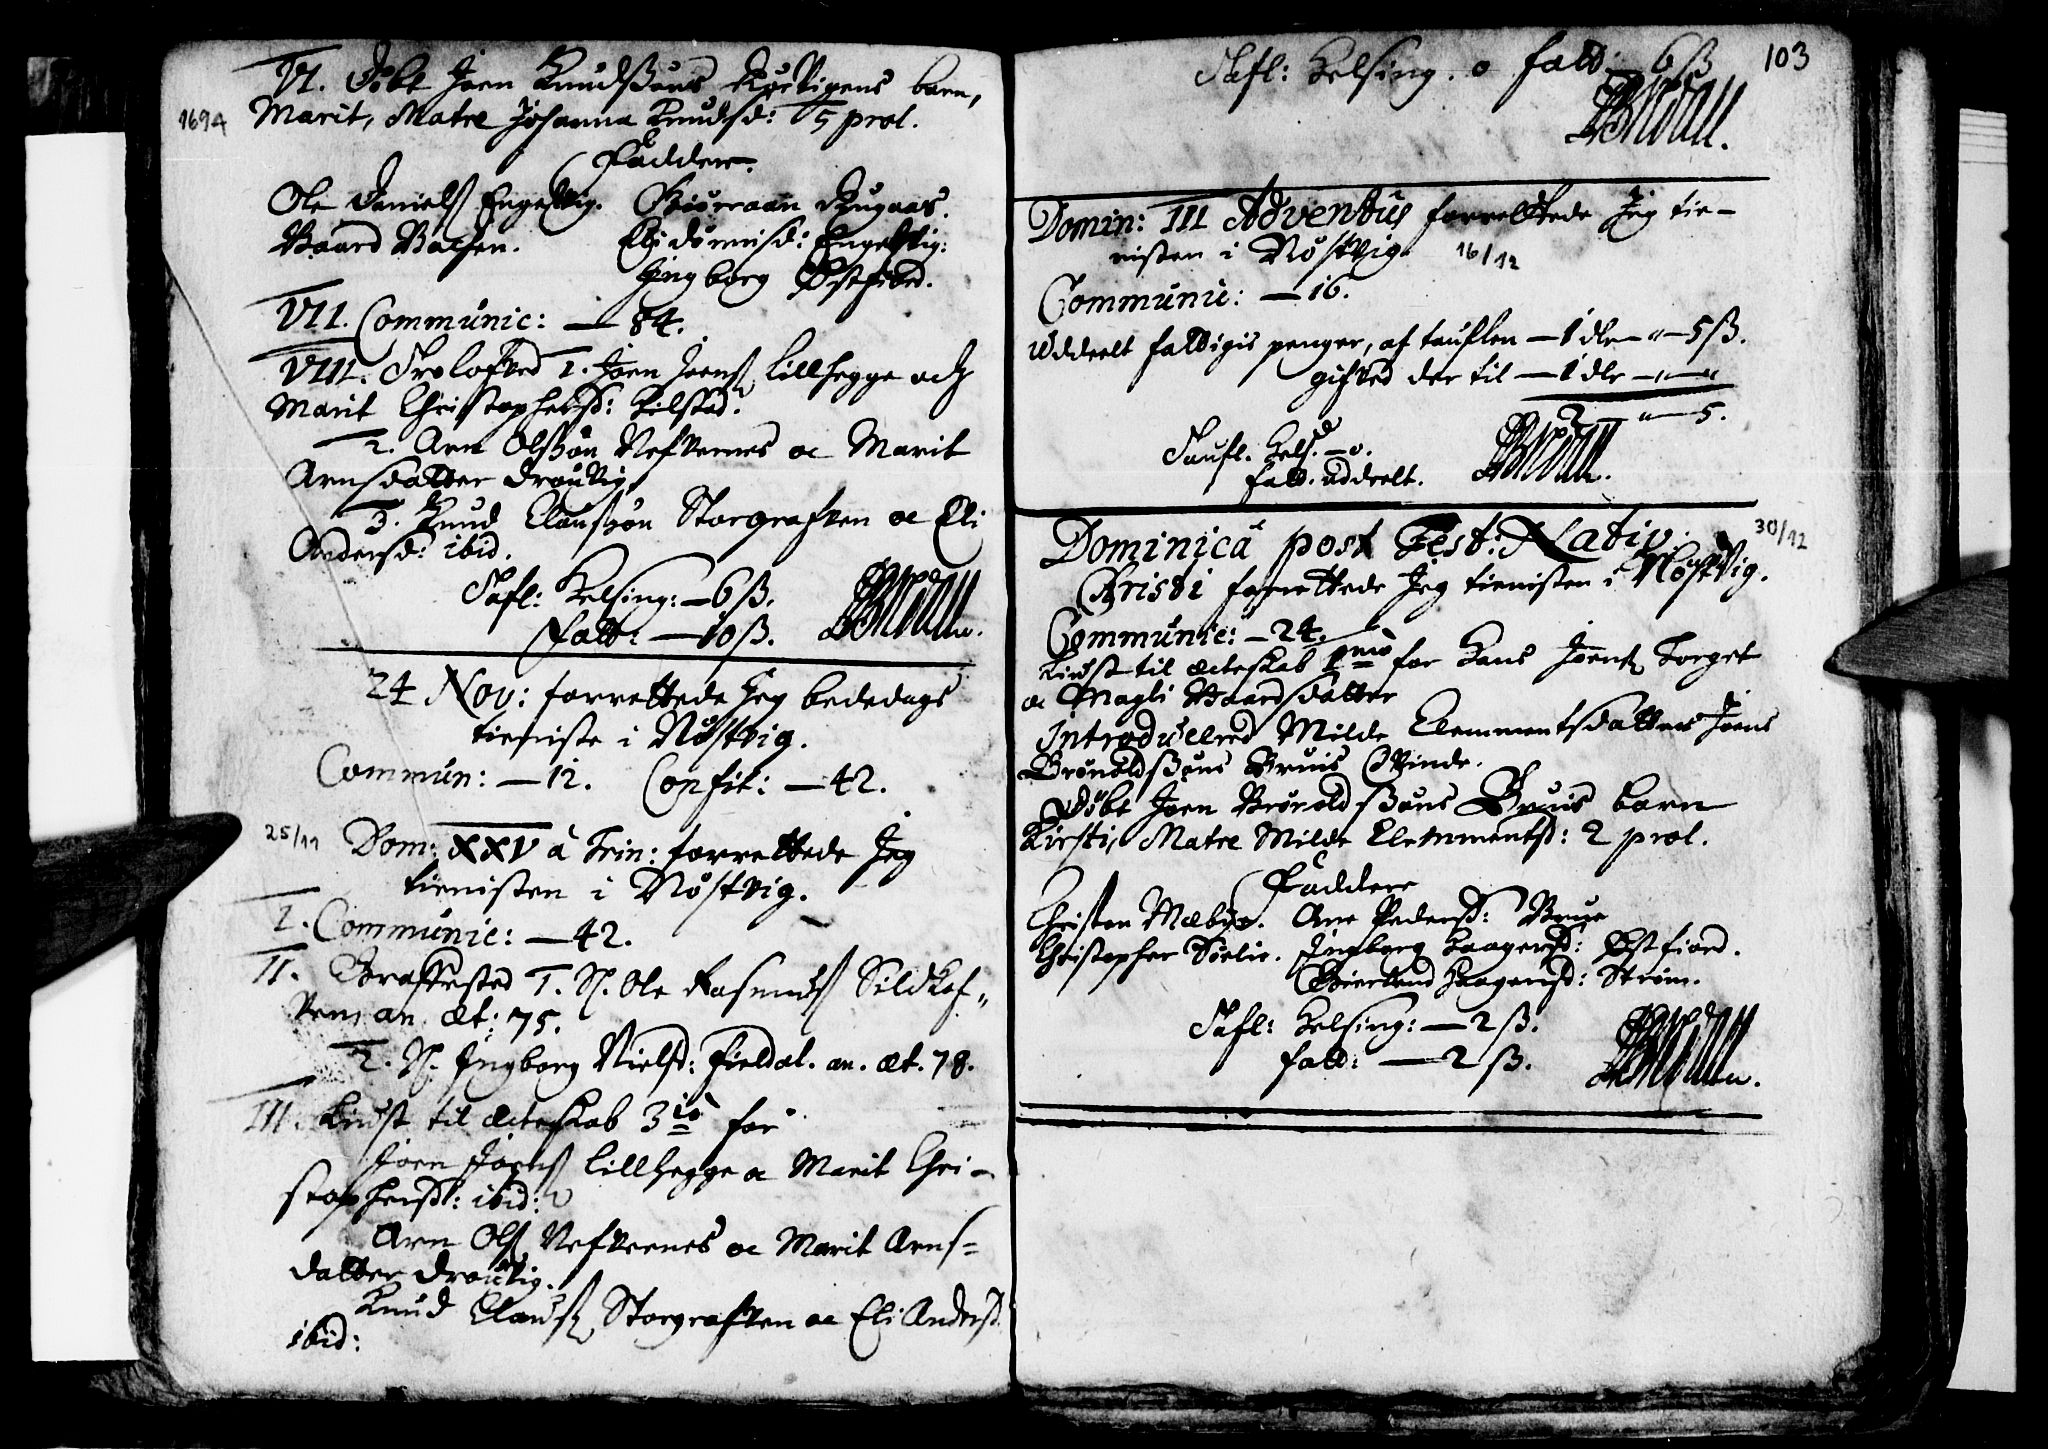 1694
VI. Døbt Joen Knudssøns Kørvigens barn,
Marit, Matre Johanna Knudsd: 5 prol.
Faddere.
Ole Daniels Engelvig. Giørraan Rugaas.
Baard Bachen. Eli Dønnisd: Engelvig:
Ingborg Østfibd.
VII. Communic: — 84.
VIII. Trolofved 1. Joen Joens Lillhegge och
Marit Christophersd: Kilstad.
2. Arn Olssøn Nefvernes oc Marit
Arnsdatter Drauvig.
3. Knud Claussøn Storgrafven oc Eli
Andersd: ibid.
Tafl: Helsing: — 6 ß.
Fatt: — 10 ß.
24 Nov: forrettede Jeg bededags
tieniste i Nøstvig.
Commun: — 12. Confit: — 42.
25/11 Dom: XXV à Trin: forrettede Jeg
tienisten i Nøstvig.
I. Communic: — 42.
II. Jordfested 1. S. Ole Rasmus Sildkaf-
ven an. æt: 75.
2. S. Ingborg Nielsd: Fieldal. an. æt. 78.
III. Liust til ecteskab 3io for
Joen Joens Lillhegge oc Marit Chri-
stophersd: ibid:
Arn Ols Nefvernes oc Marit Arns-
datter Drauvig.
Knud Claus Storgrafven oc Eli Andersd
ibid:
103
Tafl: Helsing. 0 fatt: 6 ß
Domin: III Adventus forrettede Jeg tie-
nisten i Nøstvig. 16/12
Communic: — 16.
Uddeelt fattigis penger, af tauflen — 1 dlr — " — 5 ß.
gifved der til — 1 dlr — " — "
2 " — 5.
Taufl. Hels. — 0.
fatt. uddeelt.
Dominica post Fest: Nativ: 30/12
Christi forrettede Jeg tienisten i Nøstvig.
Communic: — 24.
Liust til ecteskab pmo for Hans Joens Torget
oc Magli Baardsdatter
Introducered Milde Clemmentsdatter Joens
Brønoldssøns Bruis Qvinde.
Døbt Joen Brønoldssøns Bruis barn
Kirsti, Matre Milde Clemmentsd: 2 prol.
Faddere
Christen Mæbye. Ane Pedersd: Brue
Christopher Sørlie. Ingborg Haagensd: Østfiord.
Giertrud Haagensd: Strøm.
Tafl: Helsing: — 2 ß.
fatt: — 2 ß.